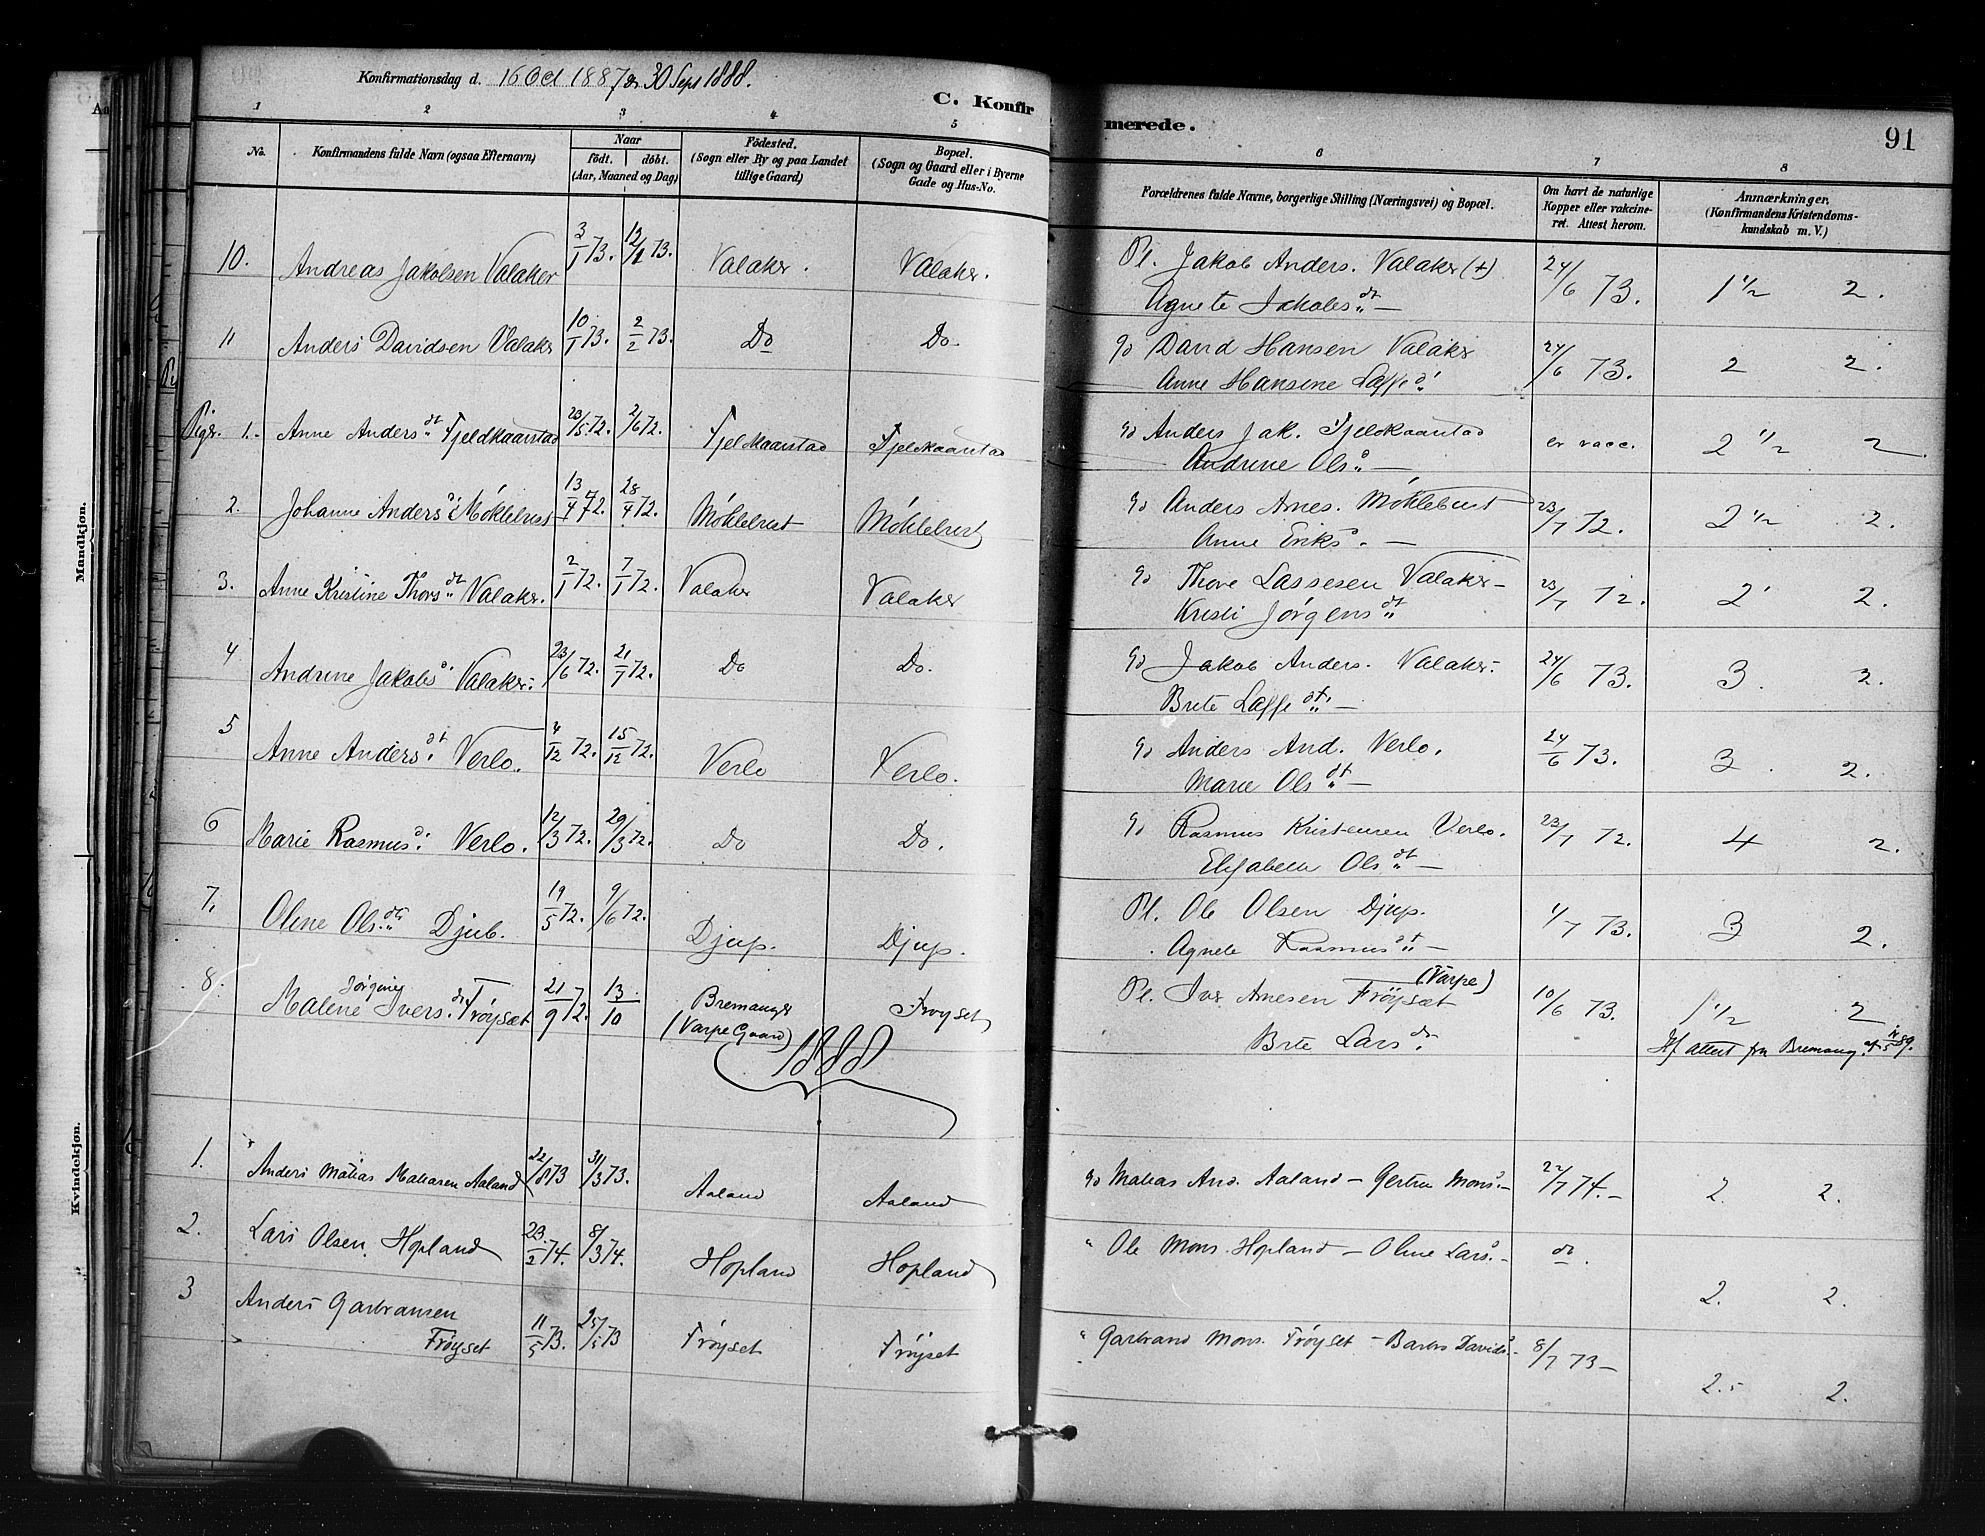 Konfirmationsdag d. 16 Oct 1887 & 30 Sept 1888.
C. Konfirmerede.
91
1 2 3 4 5 6 7 8
No.
Konfirmandens fulde Navn (ogsaa Efternavn)
Naar
födt. döbt.
(Aar, Maaned og Dag)
Födested.
(Sogn eller By og paa Landet
tillige Gaard)
Bopæl.
(Sogn og Gaard eller i Byerne
Gade og Hus-No.
Forældrenes fulde Navne, borgerlige Stilling (Næringsvei) og Bopæl.
Om havt de naturlige
Kopper eller vakcine-
ret. Attest herom.
Anmærkninger.
(Konfirmandens Kristendoms-
kundskab m. V.)
10. Andreas Jakobsen Valaker 3/1 73. 12/1 73. Valaker. Valaker. Pl. Jakob Anders. Valaker (+) 24/6 73. 1 1/2 2.
Agnete Jakobs dt —
11 Anders Davidsen Valaker 10/1 73. 2/2 73. Do Do. Gd David Hansen Valaker 24/6 73. 2 2.
Anne Hansine Lasse d
Piger. 1. Anne Anders dt Fjeldskaarstad 23/5 72. 2/6 72. Fjeldskaarstad Fjeldskaarstad Gd Anders Jak. Fjeldskaarstad er vacc. 2 1/2 2
Andrine Ols d —
2. Johanne Anders d Möklebust 13/4 72. 28/4 72. Möklebust Möklebust Gd Anders Arnes. Möklebust 23/7 72. 2 1/2 2.
Anne Eriks d. —
3. Anne Kristine Thors dt Valaker. 2/1 72. 7/1 72. Valaker Valaker Gd Thore Lassesen Valaker — 23/7 72. 2 2.
Kristi Jörgens dt
4 Andrine Jakobs d. Valaker. 23/6 72. 21/7 72. Do Do. Gd Jakob Anders. Valaker. 24/6 73. 3. 2.
Brete Lasse dt —
5 Anne Anders dt Verlo. 4/12 72. 15/12 72. Verlo Verlo. Gd Anders And. Verlo. 24/6 73. 3. 2.
Marie Ols dt —
6 Marie Rasmus d. Verlo. 12/3 72. 29/3 72. Do Do. Gd Rasmus Kristensen Verlo. 23/7 72. 4 2.
Elisabeth Ols dt —
7. Oline Ols dt Djub. 19/5 72. 9/6 72. Djup. Djup. Pl. Ole Olsen Djup. 1/7 73. 3 2.
Agnete Rasmus dt —
8. Malene Jörgine Ivers. dt Fröyset 21/9 72. 13/10 Bremanger Fröyset Pl. Iver Arnesen Fröyset (Varpe) 10/6 73. 1 1/2 2
(Varpe Gaard) Brte Lars dt
Attest fra Bremang. 89.
1888
1. Anders Matias Matiasen Aaland 22/ 73 31/3 73. Aaland Aaland Gd Matias And. Aaland — Gertru Mons d. — 22/7 74. — 2. 2.
2. Lars Olsen Hopland 23/2 74. 8/3 74. Hopland Hopland " Ole Mons. Hopland — Oline Lars d. — do. 2. 2.
3 Anders Garbransen
Fröyset 11/5 73. 25/5 73 Fröyset Fröyset " Garbrand Mons. Fröyset — Barbro Davids d. — 8/7 73 — 2. 2.
Mandkjøn.
Kvindekjøn.